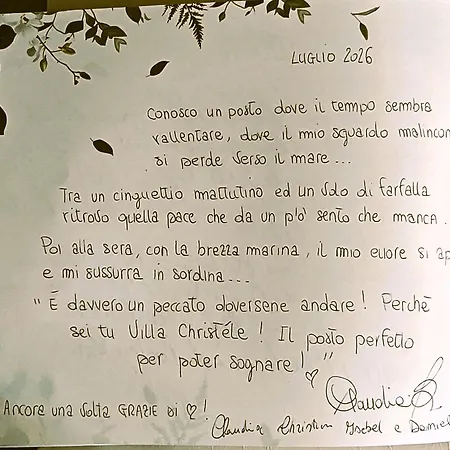 LUGLIO 2026
Conosco un posto dove il tempo sembra
rallentare, dove il mio sguardo malincon
si perde verso il mare...
Tra un cinguettio mattutino ed un volo di farfalla
ritrovo quella pace che da un pò sento che manca.
Poi alla sera, con la brezza marina, il mio cuore si ap
e mi sussurra in sordina...
"È davvero un peccato doversene andare! Perchè
sei tu Villa Christéle! Il posto perfetto
per poter sognare!"
Claudia
Ancora una volta GRAZIE DI ♡!
Claudia Christian Ysabel e Daniel